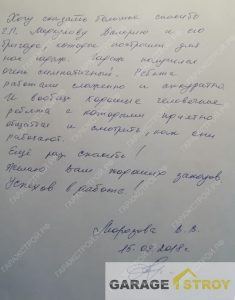 Хочу сказать большое спасибо
Валерию и его
бригаде, которые построили для
нас гараж. Гараж получился
очень симпатичный. Ребята
работали слаженно и аккуратно
И вообще хорошие человечные
ребята с которыми приятно
общаться и смотреть, как они
работают.
Ещё раз спасибо!
Желаю Вам хороших заказов
Успехов в работе!
Морозова В. В.
15.09.2018г.
GARAGE STROY